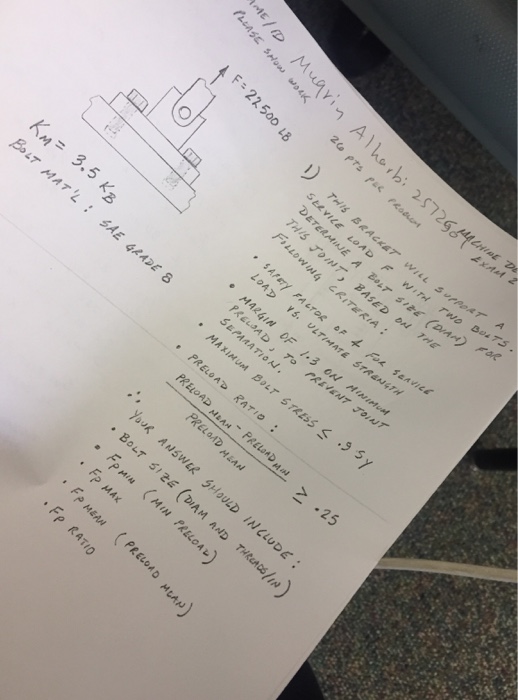 NAME/ID Muqrin Alharbi
PLEASE SHOW WORK
MACHINE DE
EXAM 2
26 PTS PER PROBLEM
F = 22500 LB
KM = 3.5 KB
BOLT MAT'L: SAE GRADE 8
1) THIS BRACKET WILL SUPPORT A
SERVICE LOAD F WITH TWO BOLTS.
DETERMINE A BOLT SIZE (DIAM) FOR
THIS JOINT, BASED ON THE
FOLLOWING CRITERIA:
• SAFETY FACTOR OF 4 FOR SERVICE
LOAD VS. ULTIMATE STRENGTH
• MARGIN OF 1.3 ON MINIMUM
PRELOAD, TO PREVENT JOINT
SEPARATION.
• MAXIMUM BOLT STRESS ≤ .9 SY
• PRELOAD RATIO:
PRELOAD MEAN - PRELOAD MIN
PRELOAD MEAN
≥ .25
∴ YOUR ANSWER SHOULD INCLUDE:
• BOLT SIZE (DIAM AND THREADS/IN)
• FP MIN (MIN PRELOAD)
• FP MAX
• FP MEAN (PRELOAD MEAN)
• FP RATIO